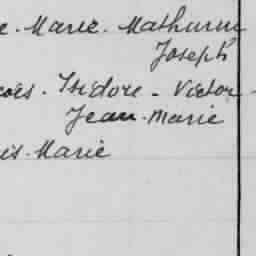 e. Marie. Mathurin
Joseph
çois. Isidore - Victor -
Jean-Marie
is. Marie